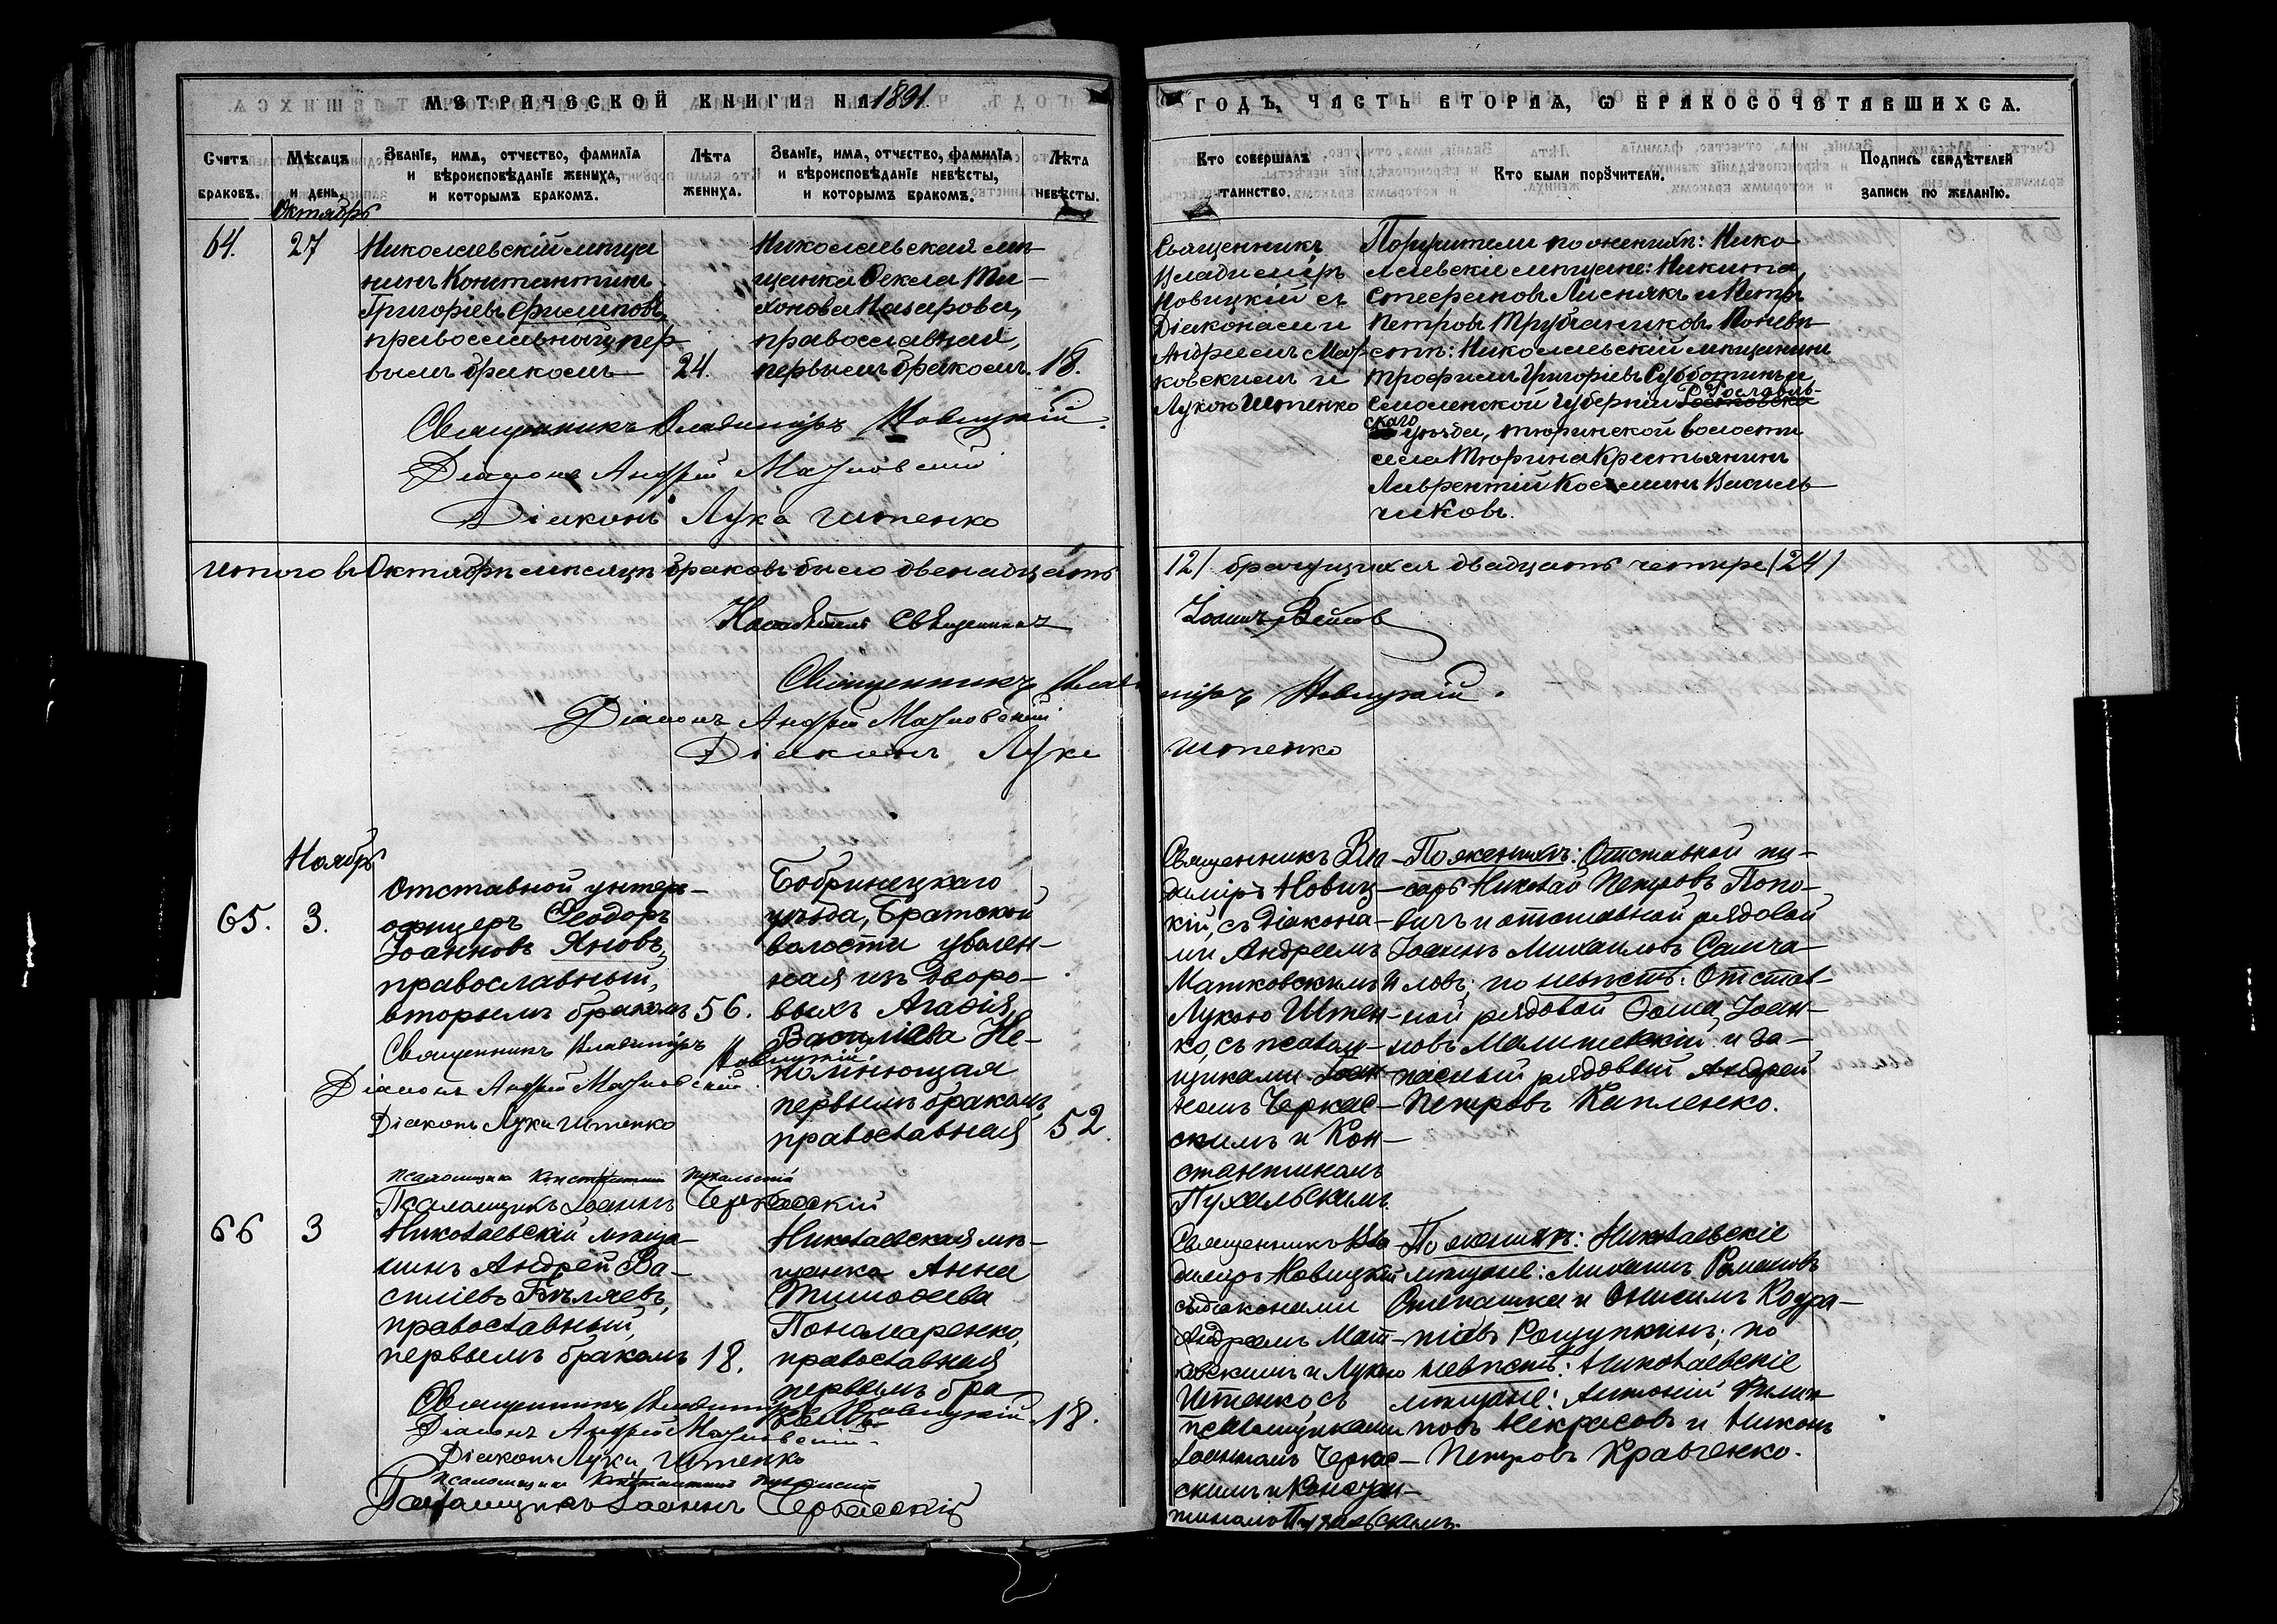 МЕТРИЧЕСКОЙ КНИГИ НА 1891
ГОДЪ, ЧАСТЬ ВТОРАѦ, Ѡ БРАКОСОЧЕТАВШИХСѦ.
Счетъ браковъ.
Мѣсяцъ и день.
Званіе, имя, отчество, фамилія
и вѣроисповѣданіе жениха,
и которымъ бракомъ.
Лѣта жениха.
Званіе, имя, отчество, фамилія
и вѣроисповѣданіе невѣсты,
и которымъ бракомъ.
Лѣта невѣсты.
Кто совершалъ таинство.
Кто были поручители.
Подпись свидѣтелей
записи по желанію.
Октябрь
64.
27
Николаевскій мѣща
нинъ Константинъ
Григоріевъ Филиповъ,
православный, пер
вымъ бракомъ
24.
Николаевская мѣ-
щанка Ѳекла Ти-
хонова Назарова,
православная,
первымъ бракомъ.
18.
Священникъ
Владиміръ
Новицкій съ
Діаконами
Андреемъ Мат-
ковскимъ и
Лукою Штенко
Поручители по женихѣ: Нико-
лаевскіе мѣщане: Никита
Стефановъ Лиснякъ и Петръ
Петровъ Трубчаниковъ. По невѣ-
стѣ: Николаевскій мѣщанинъ
Трофимъ Григоріевъ Субботинъ и
Смоленской губерніи Рославль-
скаго уѣзда, Тюринской волости
села Тюрина крестьянинъ
Лаврентій Косминъ Василь-
чиковъ.
Священникъ Владиміръ Новицкій.
Діаконъ Андрей Матковскій
Діаконъ Лука Штенко
Итого въ Октябрѣ мѣсяцѣ браковъ было двенадцать
12/ брачущихся двадцать четыре (24)
Настоятель Священникъ
Іоаннъ
Священникъ Влади
міръ Новицкій.
Діаконъ Андрей Матковскій
Діаконъ Лука
Штенко
Ноябрь
65.
3.
Отставной унтеръ-
офицеръ Ѳеодоръ
Іоанновъ Яновъ,
православный,
вторымъ бракомъ
56.
Бобринецкаго
уѣзда, Братской
волости уволен-
ная изъ дворо-
выхъ Агафія
Василіева Не-
помнющая
первымъ бракомъ
православная
52.
Священникъ Вла-
диміръ Новиц-
кій, съ діакона-
ми Андреемъ
Матковскимъ и
Лукою Штен-
ко, съ псалом-
щиками Іоан-
номъ Черкас-
скимъ и Кон-
стантиномъ
Пухальскимъ.
По женихѣ: Отставной пи-
сарь Николай Петровъ Попо-
вичъ и отставной рядовой
Іоаннъ Михаиловъ Самча-
ловъ; по невѣстѣ: Отстав-
ной рядовой Ѳома Іоан-
новъ Малишевскій и за-
пасный рядовый Андрей
Петровъ Капленко.
Священникъ Владиміръ Новицкій.
Діаконъ Андрей Матковскій.
Діаконъ Лука Штенко
Псаломщикъ Константинъ Пухальскій
Псаломщикъ Іоаннъ Черкасскій
66
3
Николаевскій мѣща-
нинъ Андрей Ва-
силіевъ Бѣляевъ,
православный,
первымъ бракомъ
18.
Николаевская мѣ-
щанка Анна
Тимоѳеева
Пономаренко,
православная
первымъ бра
комъ
18.
Священникъ Вла
диміръ Новицкій
съ діаконами
Андреемъ Мат-
ковскимъ и Лукою
Штенко, съ
псаломщиками
Іоанномъ Черкас-
скимъ и Констан-
тиномъ Пухальскимъ.
По женихѣ: Николаевскіе
мѣщане: Михаилъ Романовъ
Остапашка и Онисимъ Кодра-
тіевъ Рощупкинъ; по
невѣстѣ: Николаевскіе
мѣщане: Антоній Филип
повъ Некрасовъ и Никонъ
Петровъ Кравченко.
Священникъ Владиміръ Новицкій
Діаконъ Андрей Матковскій.
Діаконъ Лука Штенко
Псаломщикъ Константинъ Пухальскій
Псаломщикъ Іоаннъ Черкасскій